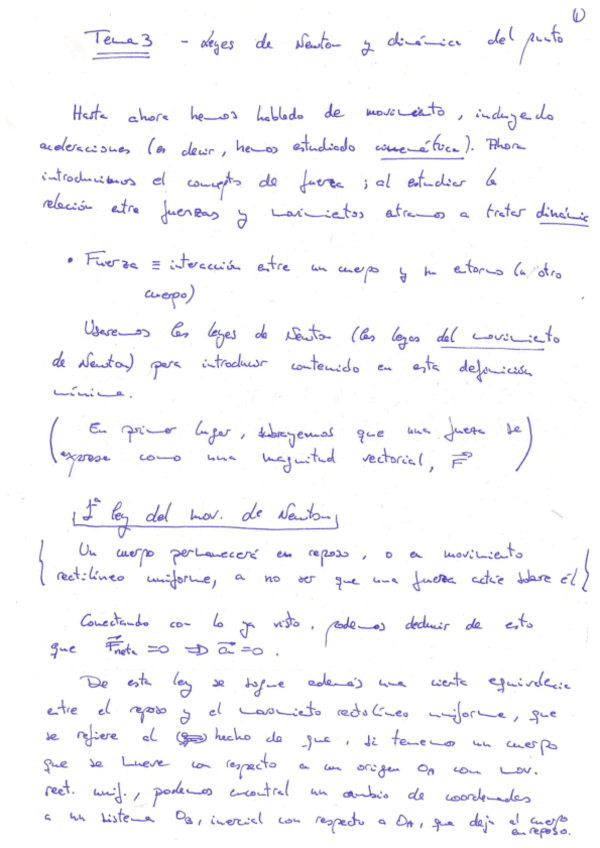 1
Tema 3 - Leyes de Newton y dinámica del punto
Hasta ahora hemos hablado de movimiento, incluyendo
aceleraciones (es decir, hemos estudiado cinemática). Ahora
introducimos el concepto de fuerza; al estudiar la
relación entre fuerzas y movimientos entramos a tratar dinámica
• Fuerza ≡ interacción entre un cuerpo y su entorno (u otro
cuerpo)
Usaremos las leyes de Newton (las leyes del movimiento
de Newton) para introducir contenido en esta definición
mínima.
(En primer lugar, subrayemos que una fuerza se
exprese como una magnitud vectorial, F⃗)
1ª ley del mov. de Newton
{Un cuerpo permanecerá en reposo, o en movimiento
rectilíneo uniforme, a no ser que una fuerza actúe sobre él}
Conectando con lo ya visto, podemos deducir de esto
que F⃗neta =0 ⇒ a⃗=0.
De esta ley se sigue además una cierta equivalencia
entre el reposo y el movimiento rectilíneo uniforme, que
se refiere al hecho de que, si tenemos un cuerpo
que se mueve con respecto a un origen OA con mov.
rect. unif., podemos encontrar un cambio de coordenadas
a un sistema OB, inercial con respecto a OA, que deja al cuerpo
en reposo.